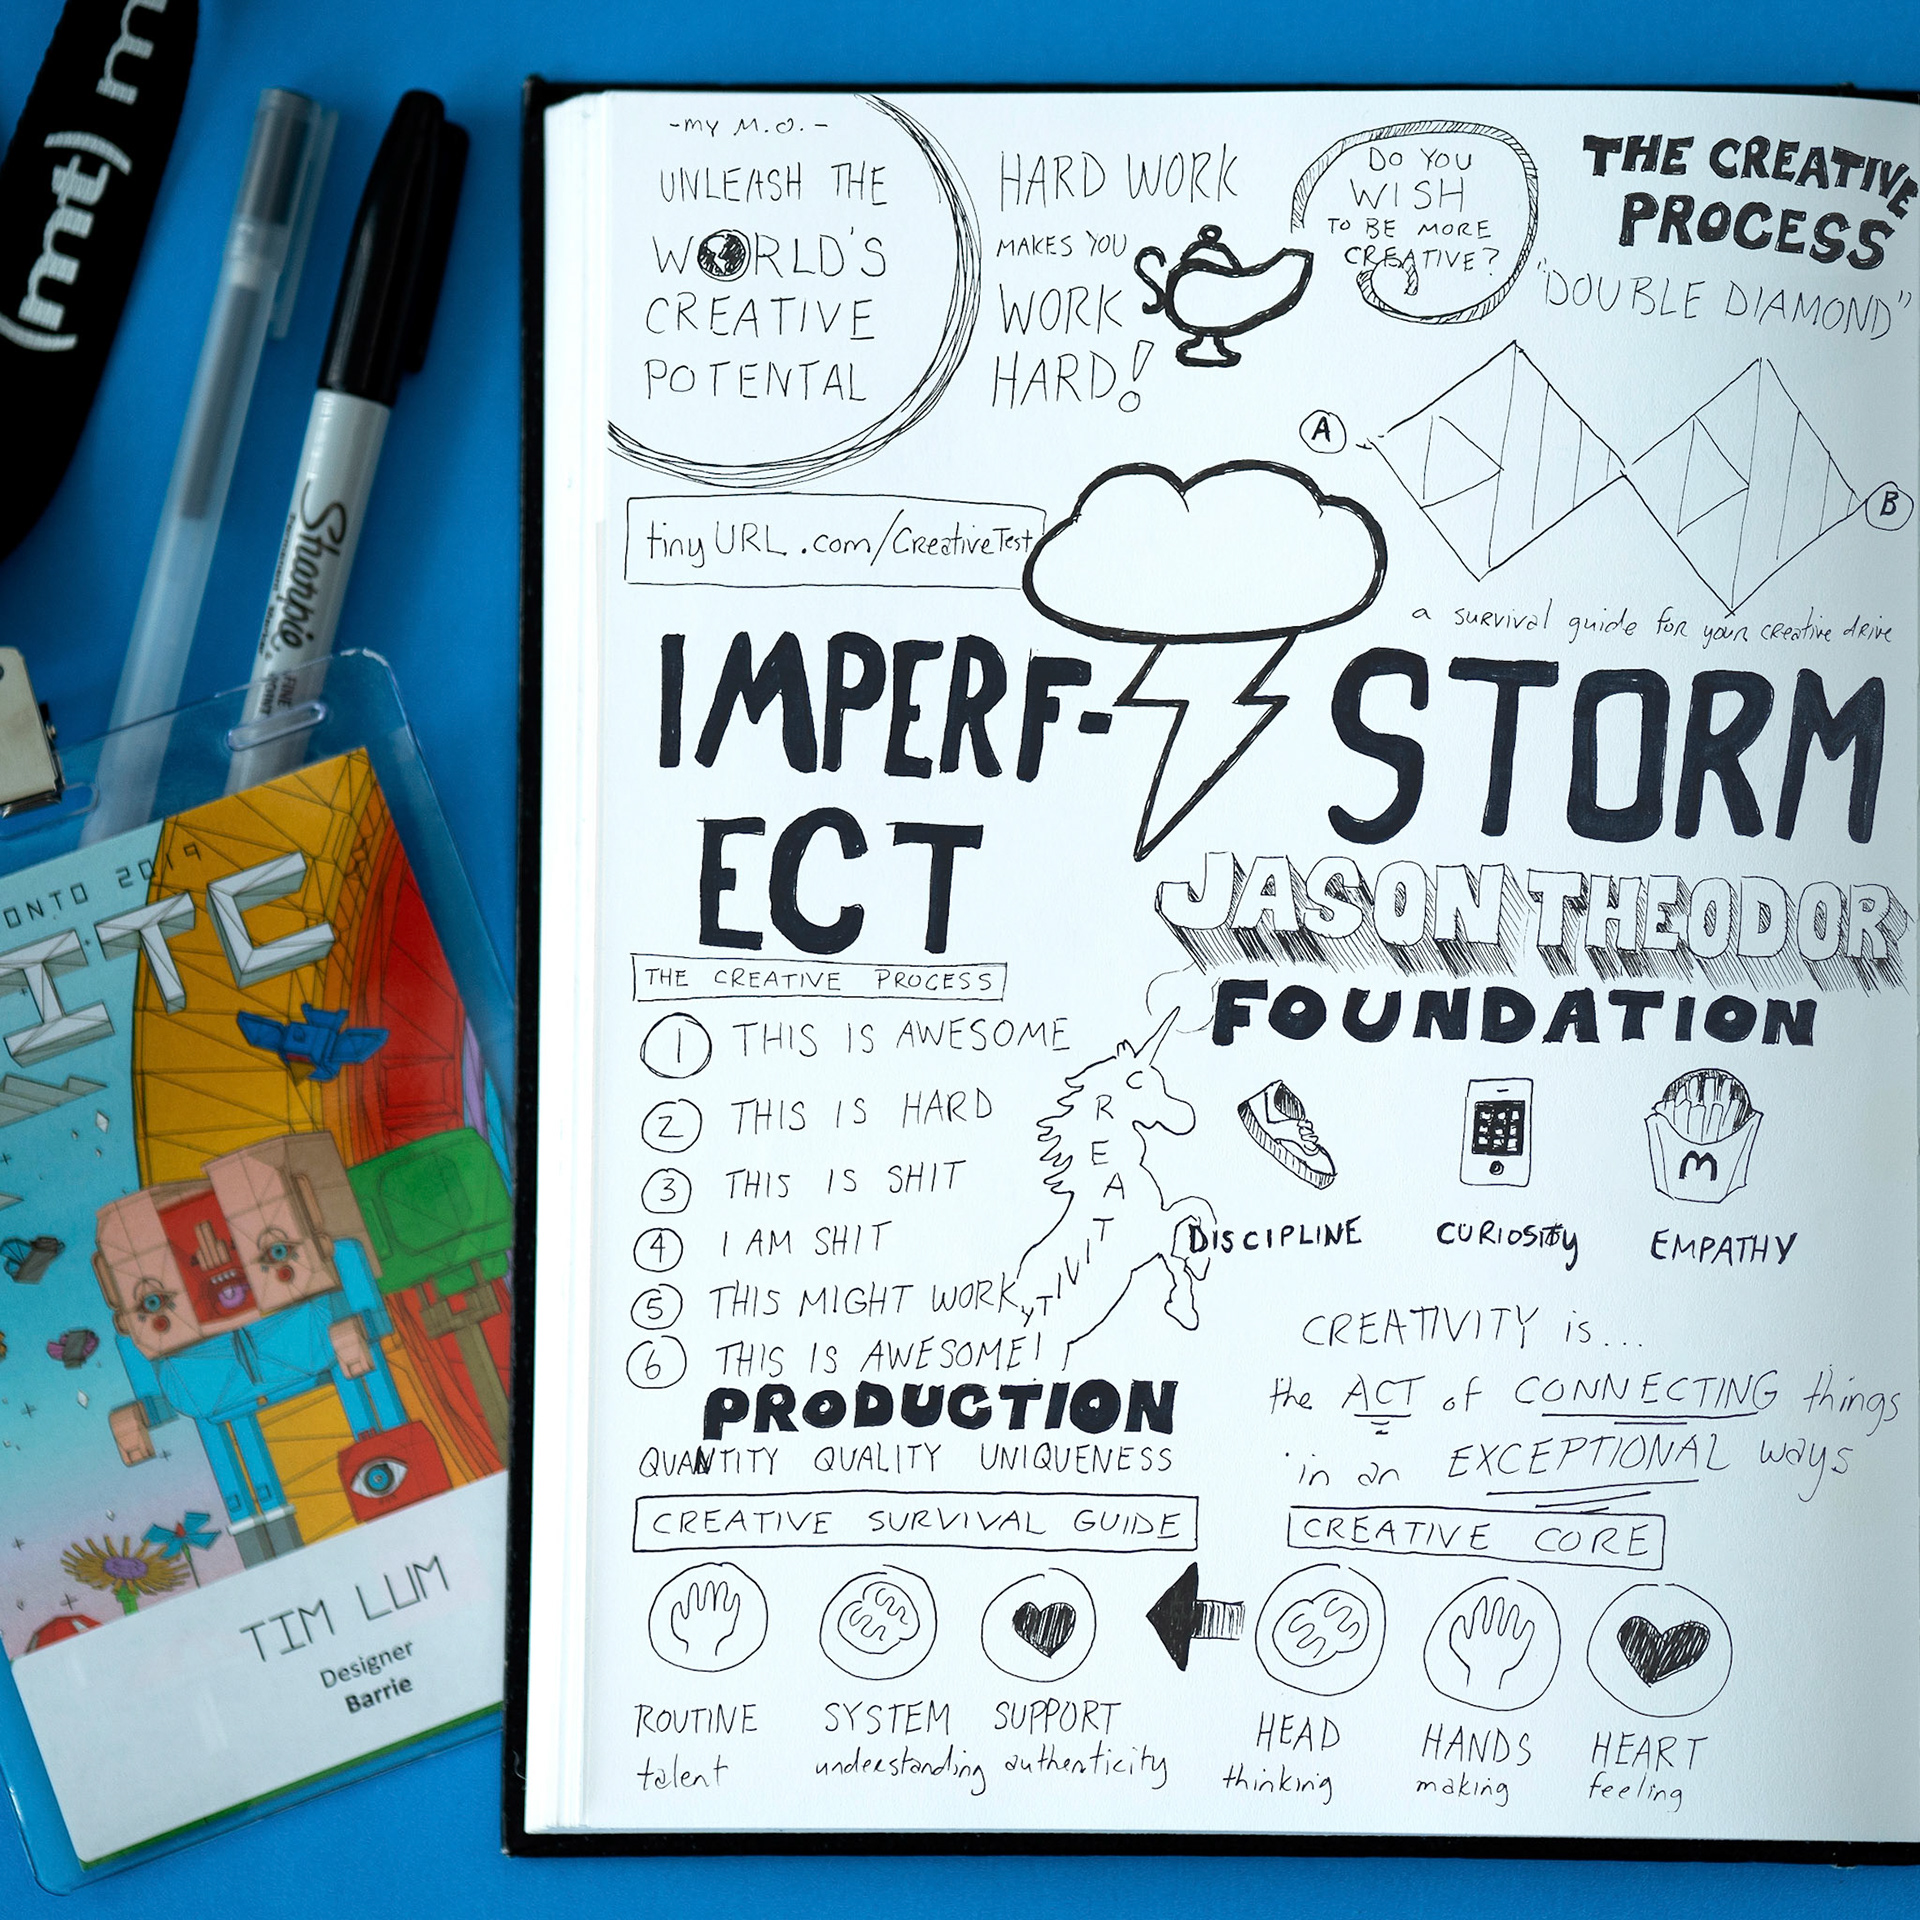 (mt) m
Sharpie
FINE
POINT
ONTO 2019
FITC
TIM LUM
Designer
Barrie
-MY M.O.-
UNLEASH THE
WORLD'S
CREATIVE
POTENTAL
HARD WORK
MAKES YOU
WORK
HARD!
DO YOU
WISH
TO BE MORE
CREATIVE?
THE CREATIVE
PROCESS
"DOUBLE DIAMOND"
A
B
tinyURL.com/CreativeTest
a survival guide for your creative drive
IMPERF-
ECT
STORM
JASON THEODOR
THE CREATIVE PROCESS
1 THIS IS AWESOME
2 THIS IS HARD
3 THIS IS SHIT
4 I AM SHIT
5 THIS MIGHT WORK
6 THIS IS AWESOME!
CREATIVITY
FOUNDATION
M
DISCIPLINE CURIOSITY EMPATHY
PRODUCTION
QUANTITY QUALITY UNIQUENESS
CREATIVITY is...
the ACT of CONNECTING things
in an EXCEPTIONAL ways
CREATIVE SURVIVAL GUIDE
ROUTINE SYSTEM SUPPORT
talent understanding authenticity
CREATIVE CORE
HEAD HANDS HEART
thinking making feeling